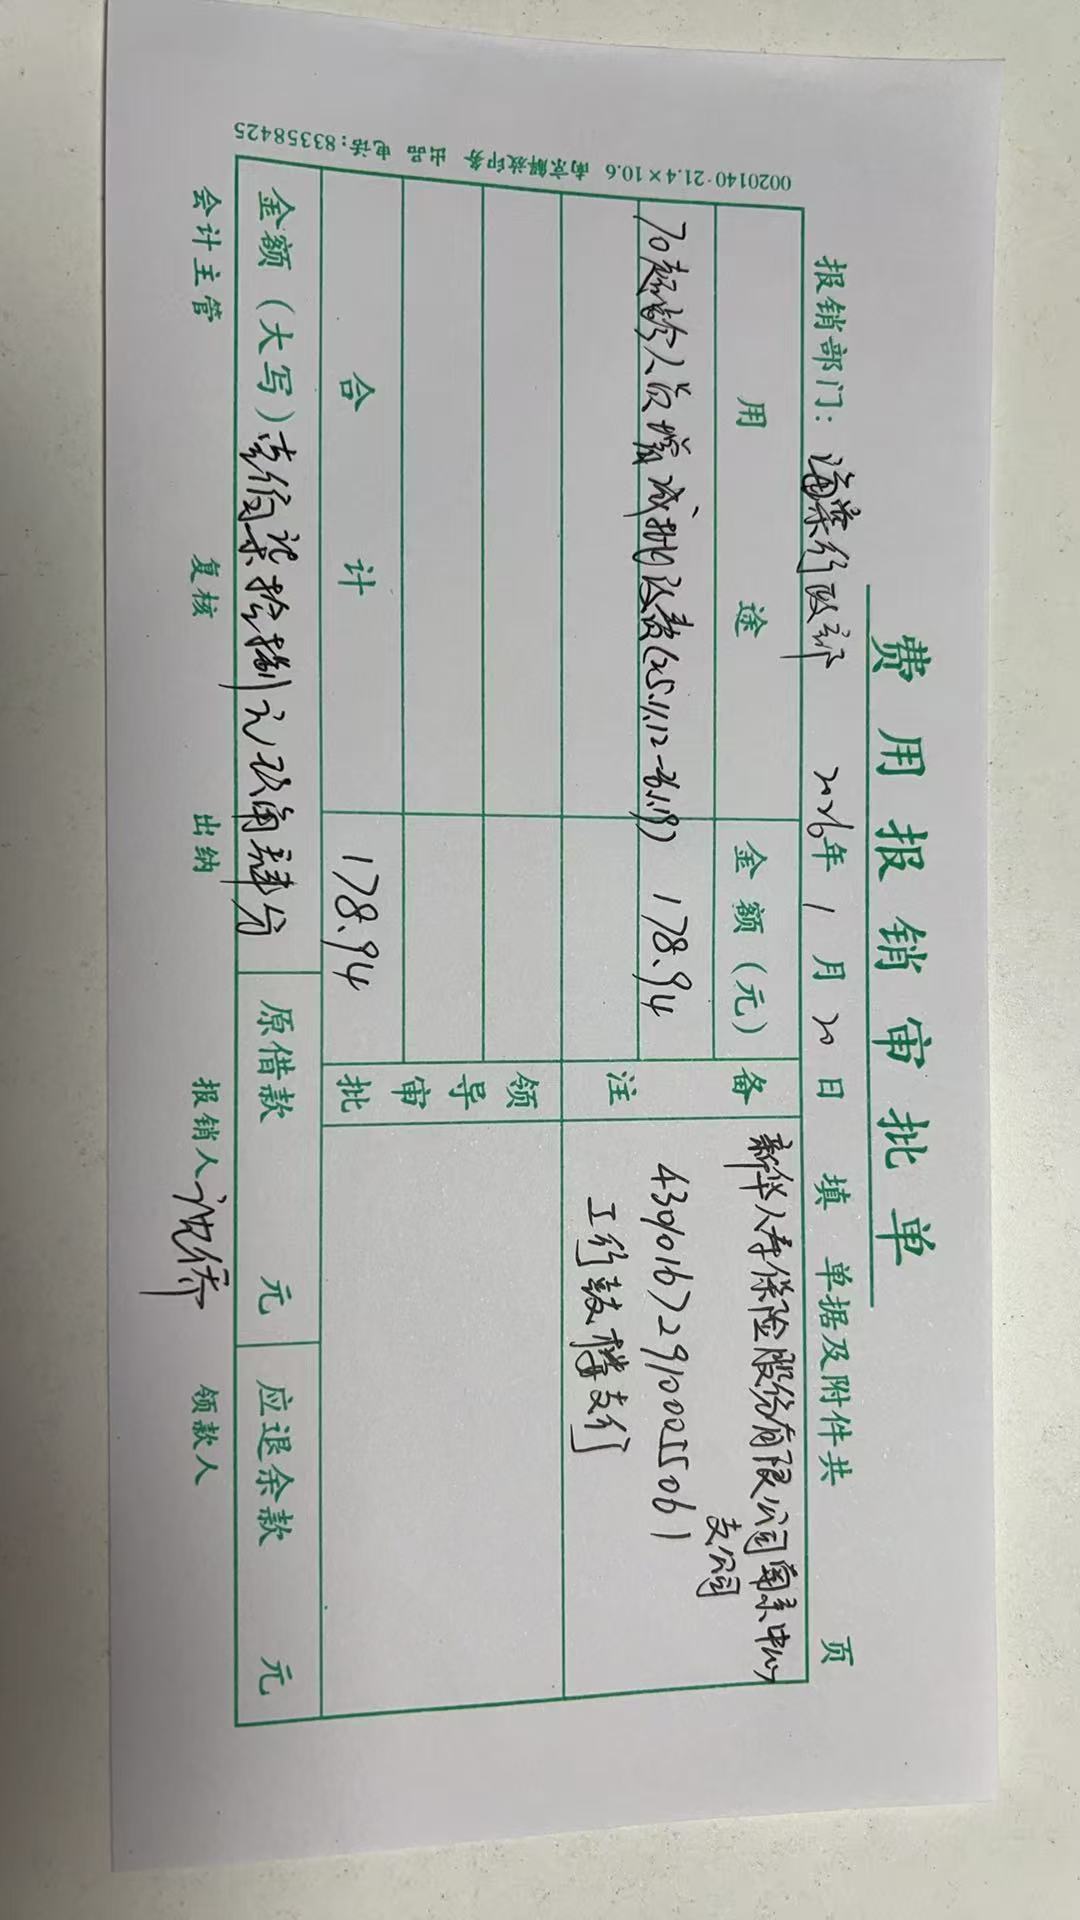 费用报销审批单
报销部门：海荣行政部 2026年1月20日填 单据及附件共 页
用途 金额（元） 备注 新华人寿保险股份有限公司南京中心
支公司
70超龄人员增减 费(25.11.12-26.1.19) 178.94
4301016729100055061
工行鼓楼支行
领导审批
合计 178.94
金额（大写）壹佰柒拾捌元玖角肆分 原借款 元 应退余款 元
会计主管 复核 出纳 报销人 沈侨 领款人
0020140·21.4×10.6 南京解放印务 出品 电话：83358425